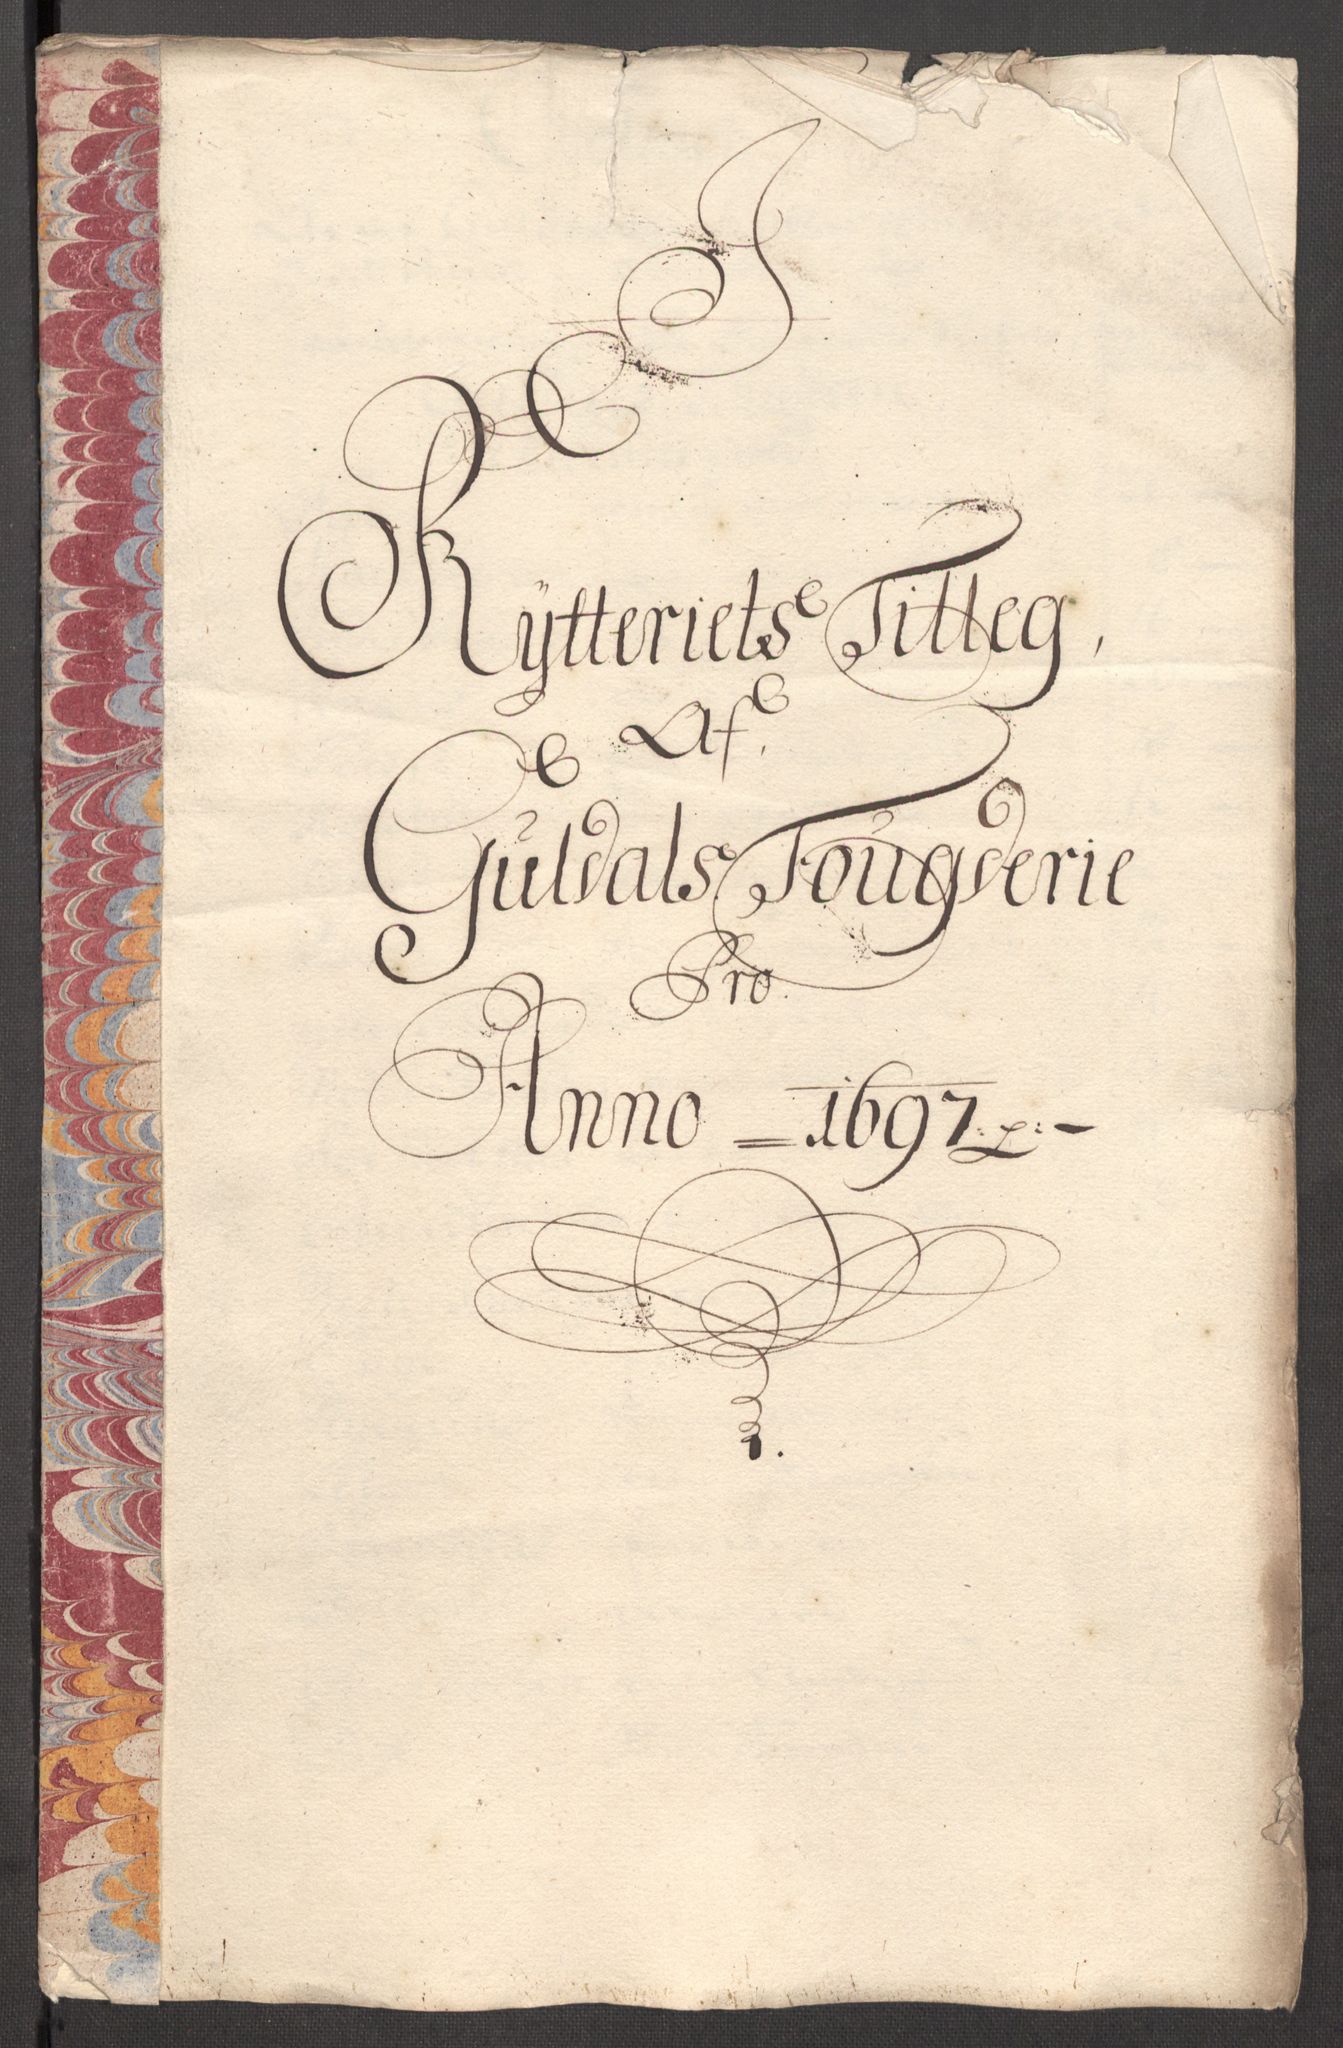 I
Rÿtteriets Tilleg,
Af,
Guldals Fougderie
Pro.
Anno = 1697